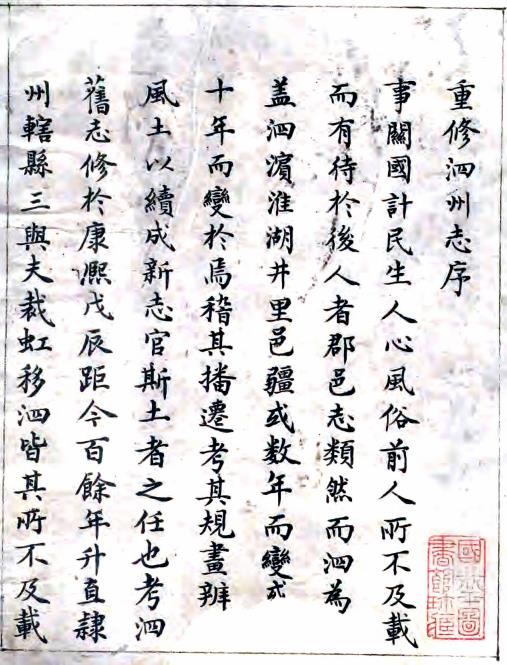 重修泗州志序
事關國計民生人心風俗前人所不及載
而有待於後人者郡邑志類然而泗為
盖泗濱淮湖井里邑疆或数年而變或
十年而變於焉稽其播遷考其規畫辨
風土以續成新志官斯土者之任也考泗
舊志修於康熙戊辰距今百餘年升直隸
州轄縣三與夫裁虹移泗皆其所不及載